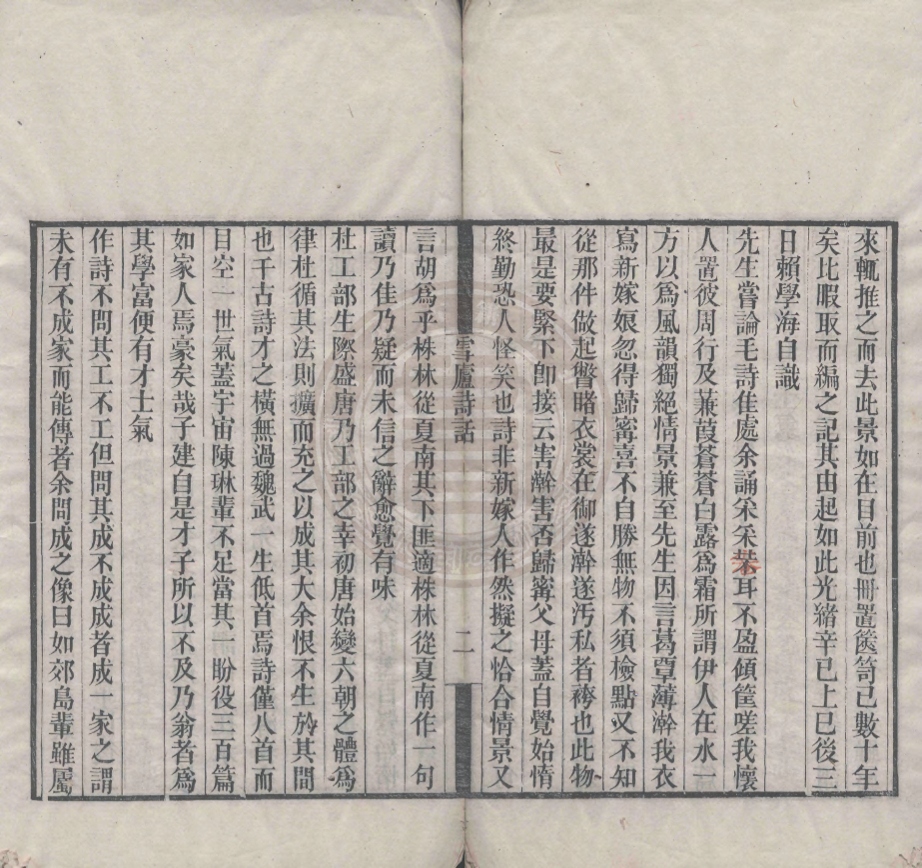 來輒推之而去此景如在目前也冊置篋笥已數十年
矣比暇取而編之記其由起如此光緒辛巳上巳後三
日賴學海自識
先生嘗論毛詩佳處余誦采采菤耳不盈傾筐嗟我懷
人寘彼周行及蒹葭蒼蒼白露爲霜所謂伊人在水一
方以爲風韻獨絕情景兼至先生因言葛覃薄澣我衣
寫新嫁娘忽得歸寗喜不自勝無物不須檢點又不知
從那件做起瞥睹衣裳在御遂澣遂汚私者袴也此物
最是要緊下卽接云害澣害否歸寗父母蓋自覺始惰
終勤恐人怪笑也詩非新嫁人作然擬之恰合情景又
雪廬詩話
二
言胡爲乎株林從夏南其下匪適株林從夏南作一句
讀乃佳乃疑而未信之辭愈覺有味
杜工部生際盛唐乃工部之幸初唐始變六朝之體爲
律杜循其法則擴而充之以成其大余恨不生於其間
也千古詩才之橫無過魏武一生低首焉詩僅八首而
目空一世氣蓋宇宙陳琳輩不足當其一盼役三百篇
如家人焉豪矣哉子建自是才子所以不及乃翁者爲
其學富便有才士氣
作詩不問其工不工但問其成不成成者成一家之謂
未有不成家而能傳者余問成之像曰如郊島輩雖屬